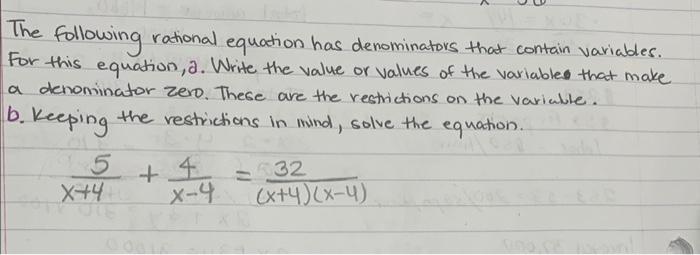 The following rational equation has denominators that contain variables.
For this equation, a. Write the value or values of the variables that make
a denominator zero. These are the restrictions on the variable.
b. Keeping the restrictions in mind, solve the equation.
5/(x+4) + 4/(x-4) = 32/((x+4)(x-4))